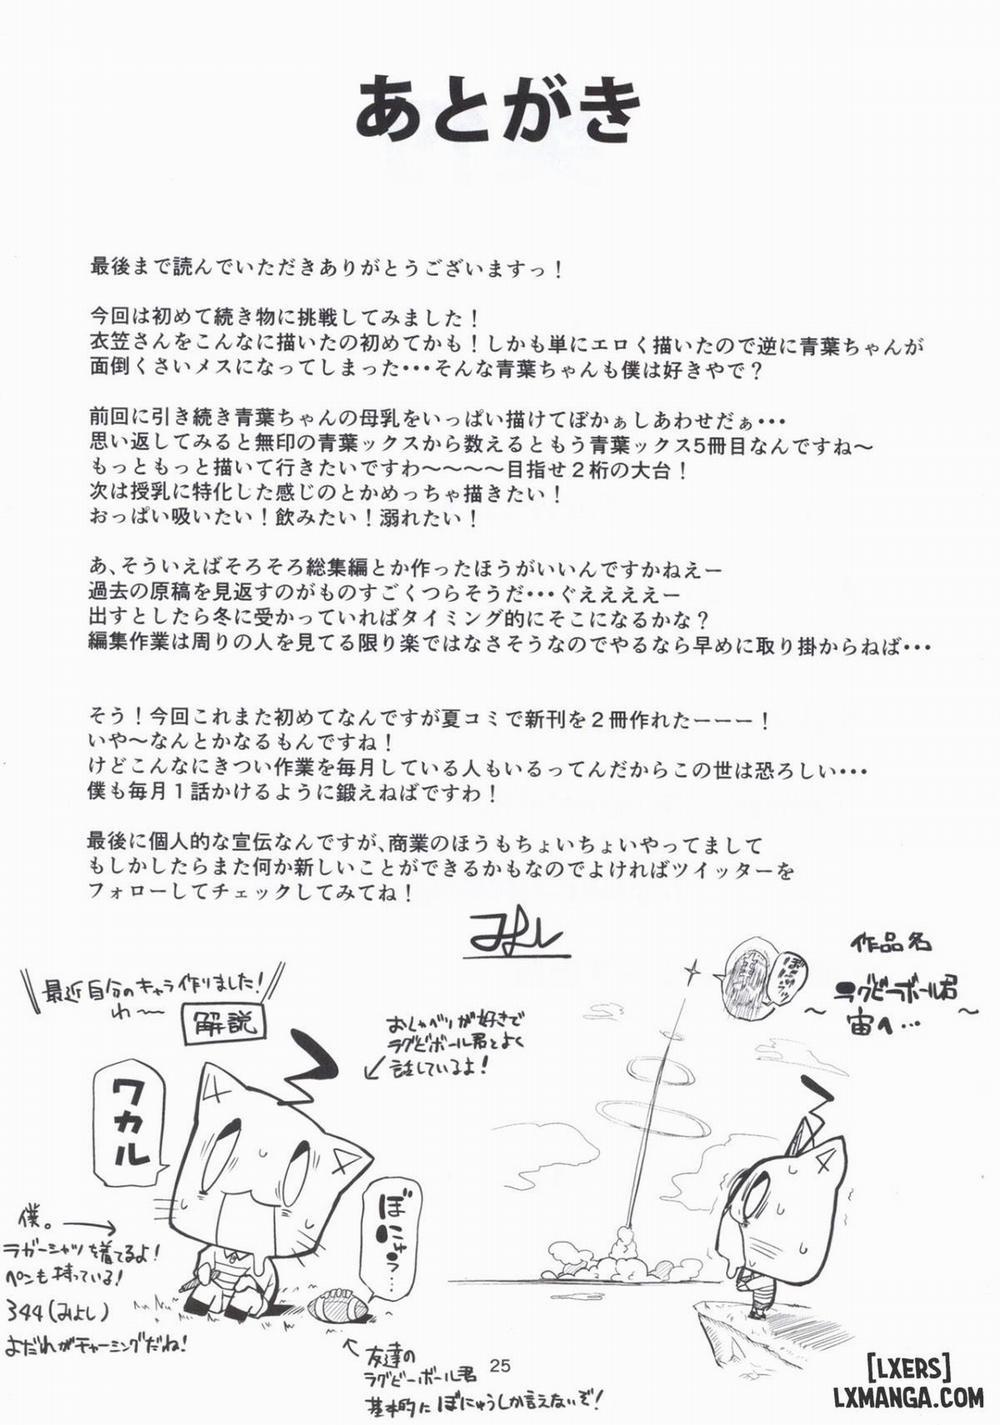 あとがき
最後まで読んでいただきありがとうございますっ！
今回は初めて続き物に挑戦してみました！
衣笠さんをこんなに描いたの初めてかも！しかも単にエロく描いたので逆に青葉ちゃんが
面倒くさいメスになってしまった・・・そんな青葉ちゃんも僕は好きやで？
前回に引き続き青葉ちゃんの母乳をいっぱい描けてぼかぁしあわせだぁ・・・
思い返してみると無印の青葉ックスから数えるともう青葉ックス5冊目なんですね～
もっともっと描いて行きたいですわ～～～～目指せ２桁の大台！
次は授乳に特化した感じのとかめっちゃ描きたい！
おっぱい吸いたい！飲みたい！溺れたい！
あ、そういえばそろそろ総集編とか作ったほうがいいんですかねえー
過去の原稿を見返すのがものすごくつらそうだ・・・ぐえええええー
出すとしたら冬に受かっていればタイミング的にそこになるかな？
編集作業は周りの人を見てる限り楽ではなさそうなのでやるなら早めに取り掛からねば・・・
そう！今回これまた初めてなんですが夏コミで新刊を２冊作れたーーー！
いや～なんとかなるもんですね！
けどこんなにきつい作業を毎月している人もいるってんだからこの世は恐ろしい・・・
僕も毎月１話かけるように鍛えねばですわ！
最後に個人的な宣伝なんですが、商業のほうもちょいちょいやってまして
もしかしたらまた何か新しいことができるかもなのでよければツイッターを
フォローしてチェックしてみてね！
みよし
最近自分のキャラ作りました！
わ～
解説
ワカル
おしゃべりが好きで
ラグビボール君とよく
話しているよ！
作品名
ラグビーボール君
～宙へ…～
ぼにゅう…
僕。
ラガーシャツを着てるよ！
ペンも持っている！
344(みよし)
よだれがチャーミングだね！
友達の
ラグビーボール君
基本的にぼにゅうしか言えないぞ！
25
[LXERS]
LXMANGA.COM